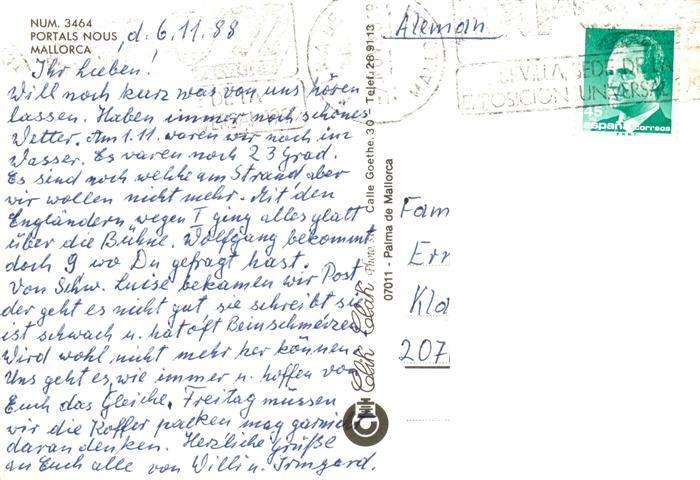 NUM. 3464
PORTALS NOUS
MALLORCA
, d. 6.11.88
Ihr Lieben!
Will noch kurz was von uns hören
lassen. Haben immer noch schönes
Wetter. Am 1.11. waren wir noch im
Wasser. Es waren noch 23 Grad.
Es sind noch welche am Strand aber
wir wollen nicht mehr. Mit den
Engländern wegen I ging alles glatt
über die Bühne. Wolfgang bekommt
doch 9 wo Du gefragt hast.
Von Schw. Luise bekamen wir Post
der geht es nicht gut, sie schreibt sie
ist schwach u. hat oft Beinschmerzen
Wird wohl nicht mehr her können.
Uns geht es, wie immer u. hoffen von
Euch das Gleiche. Freitag müssen
wir die Koffer packen mag garnicht
daran denken. Herzliche Grüße
an Euch alle von Willi u. Irmgard.
Clik Clak Calle Goethe. 30 - Telef. 28 91 13
07011 - Palma de Mallorca
Aleman
SEVILLA, SEDE DE LA
EXPOSICION UNIVERSAL
45
españa correos
Fam
Err
Kla
207